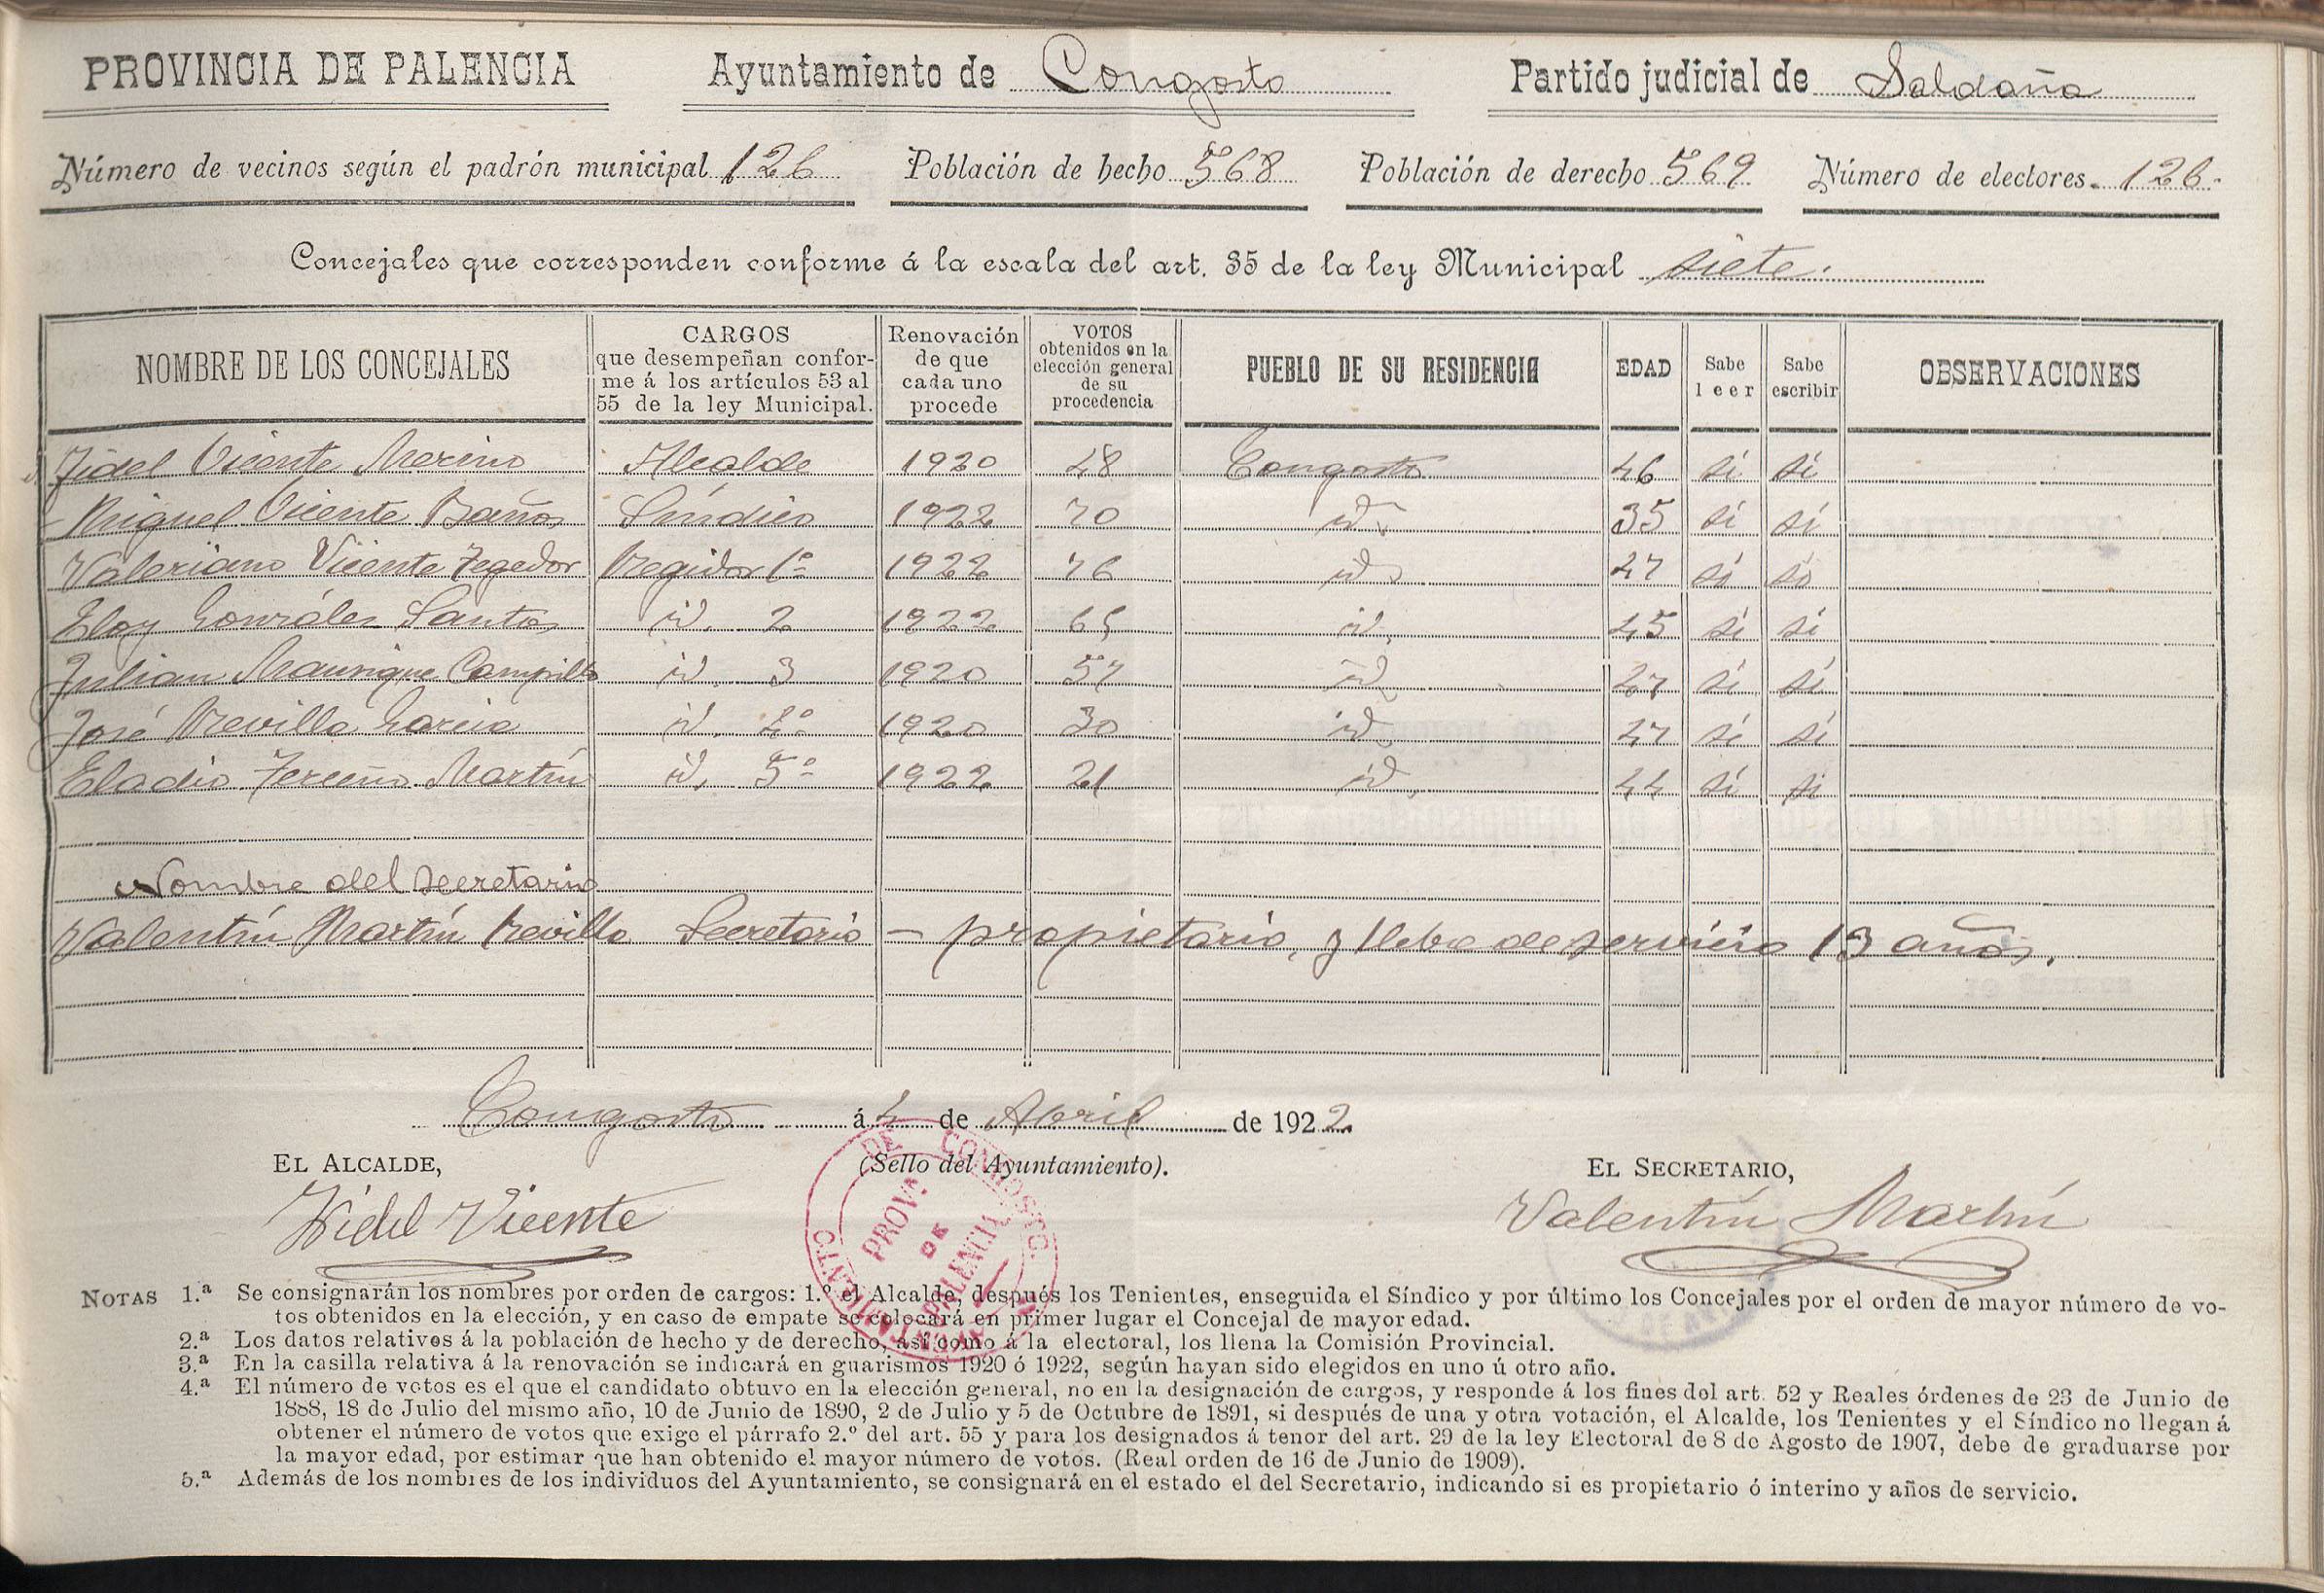 PROVINCIA DE PALENCIA Ayuntamiento de Congosto Partido judicial de Saldaña
Número de vecinos según el padrón municipal 126 Población de hecho 568 Población de derecho 569 Número de electores. 126.
Concejales que corresponden conforme á la escala del art. 35 de la ley Municipal siete.
NOMBRE DE LOS CONCEJALES CARGOS que desempeñan confor- me á los artículos 53 al 55 de la ley Municipal. Renovación de que cada uno procede VOTOS obtenidos en la elección general de su procedencia PUEBLO DE SU RESIDENCIA EDAD Sabe leer Sabe escribir OBSERVACIONES
Fidel Vicente Merino Alcalde 1920 48 Congosto 46 sí sí
Miguel Vicente Baños Síndico 1922 70 id. 35 sí sí
Valeriano Vicente Tegedor Regidor 1º 1922 76 id. 47 sí sí
Eloy González Santos id. 2 1922 65 id. 45 sí sí
Julian Manrique Campillo id. 3 1920 57 id. 47 sí sí
José Revilla Garcia id. 4º 1920 30 id. 47 sí sí
Eladio Martín id. 5º 1922 21 id. 44 sí si
Nombre del secretario
Valentín Martín Revilla Secretario — propietario, y lleba de servicio 13 años.
Congosto á 4 de Abril de 1922.
EL ALCALDE, (Sello del Ayuntamiento). EL SECRETARIO,
Fidel Vicente Valentín Martín
AYUNTAMIENTO DE CONGOSTO
PROVA. DE PALENCIA
NOTAS 1.ª Se consignarán los nombres por orden de cargos: 1.º el Alcalde, después los Tenientes, enseguida el Síndico y por último los Concejales por el orden de mayor número de vo-
tos obtenidos en la elección, y en caso de empate se colocará en primer lugar el Concejal de mayor edad.
2.ª Los datos relativos á la población de hecho y de derecho, así como á la electoral, los llena la Comisión Provincial.
3.ª En la casilla relativa á la renovación se indicará en guarismos 1920 ó 1922, según hayan sido elegidos en uno ú otro año.
4.ª El número de votos es el que el candidato obtuvo en la elección general, no en la designación de cargos, y responde á los fines del art. 52 y Reales órdenes de 23 de Junio de
1888, 18 de Julio del mismo año, 10 de Junio de 1890, 2 de Julio y 5 de Octubre de 1891, si después de una y otra votación, el Alcalde, los Tenientes y el Síndico no llegan á
obtener el número de votos que exige el párrafo 2.º del art. 55 y para los designados á tenor del art. 29 de la ley Electoral de 8 de Agosto de 1907, debe de graduarse por
la mayor edad, por estimar que han obtenido el mayor número de votos. (Real orden de 16 de Junio de 1909).
5.ª Además de los nombres de los individuos del Ayuntamiento, se consignará en el estado el del Secretario, indicando si es propietario ó interino y años de servicio.